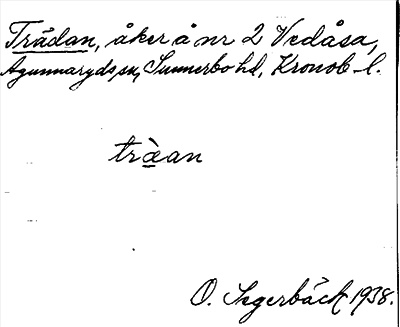 Trädan, åker å nr 2 Vedåsa,
Agunnaryds sn, Sunnerbo hd, Kronob. l.
trä̀an
O. Segerbäck 1938.